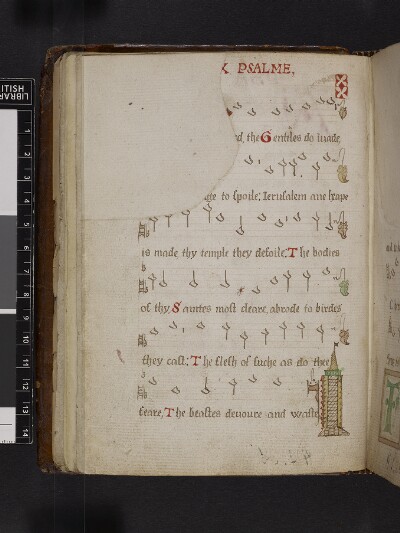 X PSALME.
d, the Gentiles do invade
ge to spoile; Ierusalem ane heape
is made thy temple they defoile. The bodies
of thy Sanctes most deare, abrode to birdes
they cast; The flesh of suche as do thee
feare, The beastes devoure and waste